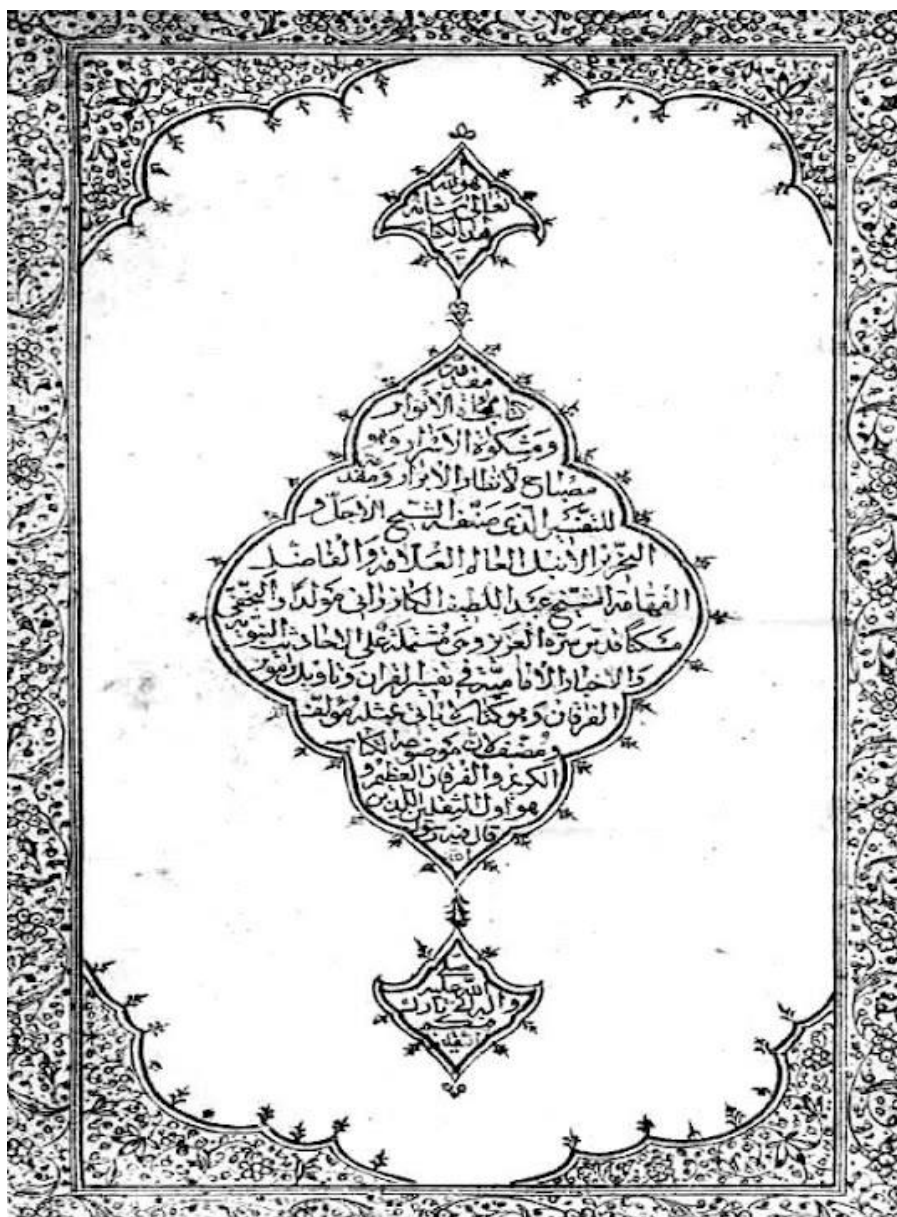 هو الله
تعالى شانه
هذا الكتاب
مقدمة
كتاب مرآة الانوار
ومشكوة الاسرار وهو
مصباح لانظار الابرار ومقدمة
للتفسير الذى صنفه الشيخ الاجل و
النحرير الأنبل العالم العلامة والفاضل
الفهامة الشيخ عبد اللطيف الكازرانى مولدا والنجفى
مسكنا قدس سره العزيز وهى مشتملة على الاحاديث النبويه
والاخبار الأمامية فى تفسير القران وتاويل امور
الفرقان وهو كتاب مثله مؤلف
و مصنف لان موضوعه الكتاب
الكريم والفرقان العظيم و
هو اول الثقلين اللذين
قال فيه رسول
الله
صلى
الله عليه
واله انى تارك
فيكم
الثقلين